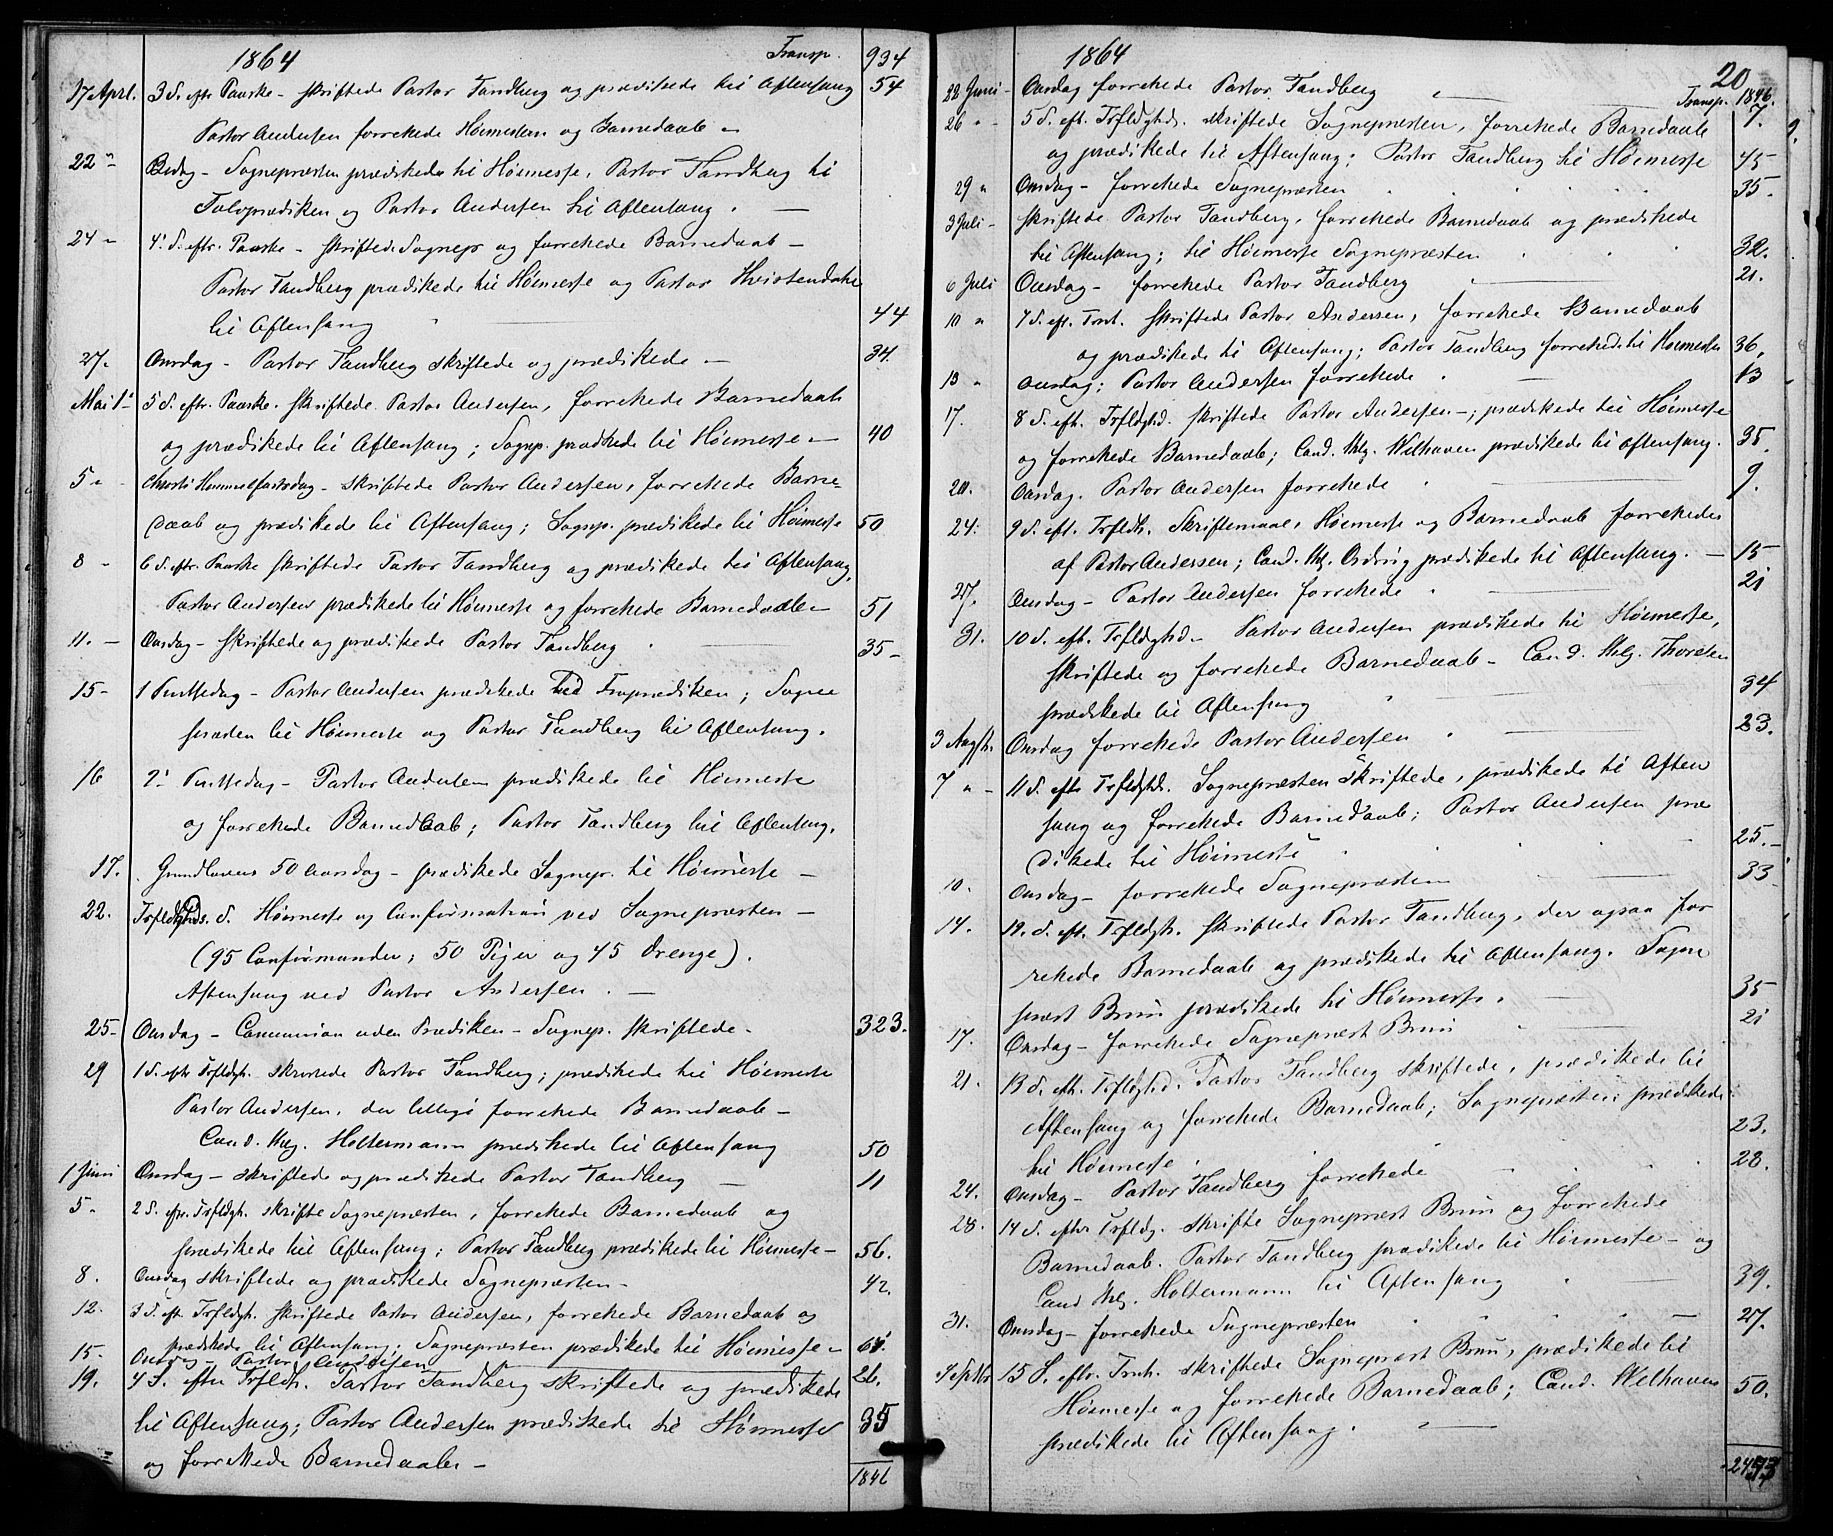 1864 Transp. 934
17 Aprl. 3 S. eftr Paaske – skriftede Pastor Tandberg og prædikede til Aftensang 54
Pastor Andersen forrettede Høimessen og Barnedaab –
22 " Bededag – Sognepræsten prædikede til Høimesse, Pastor Tandberg til
Tolvprædiken og Pastor Andersen til Aftensang. –
24 – 4. S. eftr. Paaske – skriftede Sognepr og forrettede Barnedaab –
Pastor Tandberg prædikede til Høimesse og Pastor Hvistendahl
til Aftensang " 44
27. Onsdag – Pastor Tandberg skriftede og prædikede – 34.
Mai 1 – 5 S. eftr. Paaske. skriftede Pastor Andersen, forrettede Barnedaab
og prædikede til Aftensang; Sognp. prædikede til Høimesse – 40
5 " Christi Himmelfartsdag – skriftede Pastor Andersen, forrettede Barne=
daab og prædikede til Aftensang; Sognp. prædikede til Høimesse 50
8 – 6 S. eftr. Paaske skriftede Pastor Tandberg og prædikede til Aftensang,
Pastor Andersen prædikede til Høimesse og forrettede Barnedaab – 51
11. – Onsdag – skriftede og prædikede Pastor Tandberg 35 –
15 – 1 Pintsedag – Pastor Andersen prædikede ved Froprædiken; Sogne
præsten til Høimesse og Pastor Tandberg til Aftensang.
16 2. Pintsedag – Pastor Andersen prædikede til Høimesse
og forrettede Barnedaab; Pastor Tandberg til Aftensang.
17. Grundlovens 50 Aarsdag – prædikede Sognepr. til Høimesse –
22. Trfldghds. S. Høimesse og Confirmation ved Sognepræsten –
(95 Confirmander; 50 Piger og 45 Drenge).
Aftensang ved Pastor Andersen. –
25 – Onsdag – Communion uden Prædiken – Sognep. skriftede – 323.
29 1 S. eftr Trfldgh. skriftede Pastor Tandberg; prædikede til Høimesse
Pastor Andersen, der tillige forrettede Barnedaab –
Cand. thlg. Holtermann prædikede til Aftensang 50
1 Juni Onsdag – skriftede og prædikede Pastor Tandberg – 11
5 – 2 S. eftr. Trfldgh. skrifte Sognepræsten, forrettede Barnedaab og
prædikede til Aftensang; Pastor Tandberg prædikede til Høimesse – 56.
8. Onsdag skriftede og prædikede Sognepræsten – 42.
12. 3 S. eft. Trfldgh. skriftede Pastor Andersen, forrettede Barnedaab og
prædikede til Aftensang; Sognepræsten prædikede til Høimesse –
15. Onsdag – Pastor Andersen 26.
19. 4 S. eftr Trfldh. Pastor Tandberg skriftede og prædikede
til Aftensang; Pastor Andersen prædikede til Høimesse 35
og forrettede Barnedaab –
1846
1864 20
Transp. 1846.
22 Juni – Onsdag forrettede Pastor Tandberg 7.
26 " – 5 S. eft. Trfldghds. skriftede Sognepræsten, forrettede Barnedaab
og prædikede til Aftensang; Pastor Tandberg til Høimesse 45
29 " Onsdag – forrettede Sognepræsten 35.
3 Juli – skriftede Pastor Tandberg, forrettede Barnedaab og prædikede
til Aftensang; til Høimesse Sognepræsten 32.
6 Juli Onsdag – forrettede Pastor Tandberg 21.
10 " 7 S. eft. Trnt. skriftede Pastor Andersen, forrettede Barnedaab
og prædikede til Aftensang; Pastor Tandberg forrettede til Høimesse 36.
13 " Onsdag; Pastor Andersen forrettede 13
17. 8 S. eft. Trfldghd. skriftede Pastor Andersen –, prædikede til Høimesse
og forrettede Barnedaab; Cand. thlg. Welhaven prædikede til Aftensang. 35.
20. Onsdag. Pastor Andersen forrettede 9.
24. 9 S. eft. Trfldh. Skriftemaal, Høimesse og Barnedaab forrettedes
af Pastor Andersen; Cand. thlg. prædikede til Aftensang. – 15
27. Onsdag – Pastor Andersen forrettede 21
31. 10 S. eft. Trfldghd – Pastor Andersen prædikede til Høimesse,
skriftede og forrettede Barnedaab – Cand. thlg. Thoresen
prædikede til Aftensang 34
3 Augst. Onsdag forrettede Pastor Andersen 23.
7 " – 11 S. eftr Trfldghd. Sognepræsten skriftede, prædikede til Aften
sang og forrettede Barnedaab; Pastor Andersen præ
dikede til Høimesse 25. –
10. Onsdag – forrettede Sognepræsten 33
14. 12. S. eft. Trfldgh. skriftede Pastor Tandberg, der ogsaa for
rettede Barnedaab og prædikede til Aftensang. Sogne
præst Brun prædikede til Høimesse. 35
17. Onsdag – forrettede Sognepræst Brun 21
21. 13 S. eft. Trfldghd. Pastor Tandberg skriftede, prædikede til
Aftensang og forrettede Barnedaab; Sognepræsten prædikede
til Høimesse. 23.
24. Onsdag – Pastor Tandberg forrettede 28.
28. 14 S. eftr Trfldg. skrifte Sognepræst Brun og forrettede
Barnedaab. Pastor Tandberg prædikede til Høimesse – og
Cand thlg. Holtermann til Aftensang 39.
31. Onsdag – forrettede Sognepræsten 27.
4 Septbr 15 S. eftr. Trnt. skriftede Sognepræst Brun, prædikede til
Høimesse og forrettede Barnedaab; Cand. Welhaven
prædikede til Aftensang. 50.